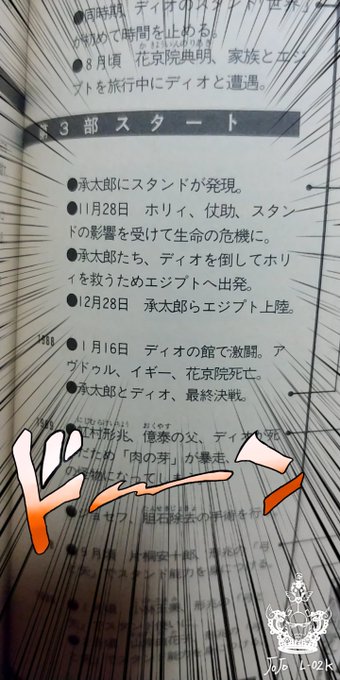 同時期、ディオのスタンド「世界」
が初めて時間を止める。
かきょういんのりあき
●8月頃 花京院典明、家族とエジ
プトを旅行中にディオと遭遇。
第3部スタート
●承太郎にスタンドが発現。
●11月28日 ホリィ、仗助、スタン
ドの影響を受けて生命の危機に。
●承太郎たち、ディオを倒してホリ
ィを救うためエジプトへ出発。
●12月28日 承太郎らエジプト上陸。
1988
●1月16日 ディオの館で激闘。ア
ヴドゥル、イギー、花京院死亡。
●承太郎とディオ、最終決戦。
1989
にじむらけいちょう おくやす
虹村形兆、億泰の父、ディオが死
んだため「肉の芽」が暴走、
ドーン
ジョセフ、胆石除去の手術を行
片桐安十郎、形兆の「弓
JoJo L-02K